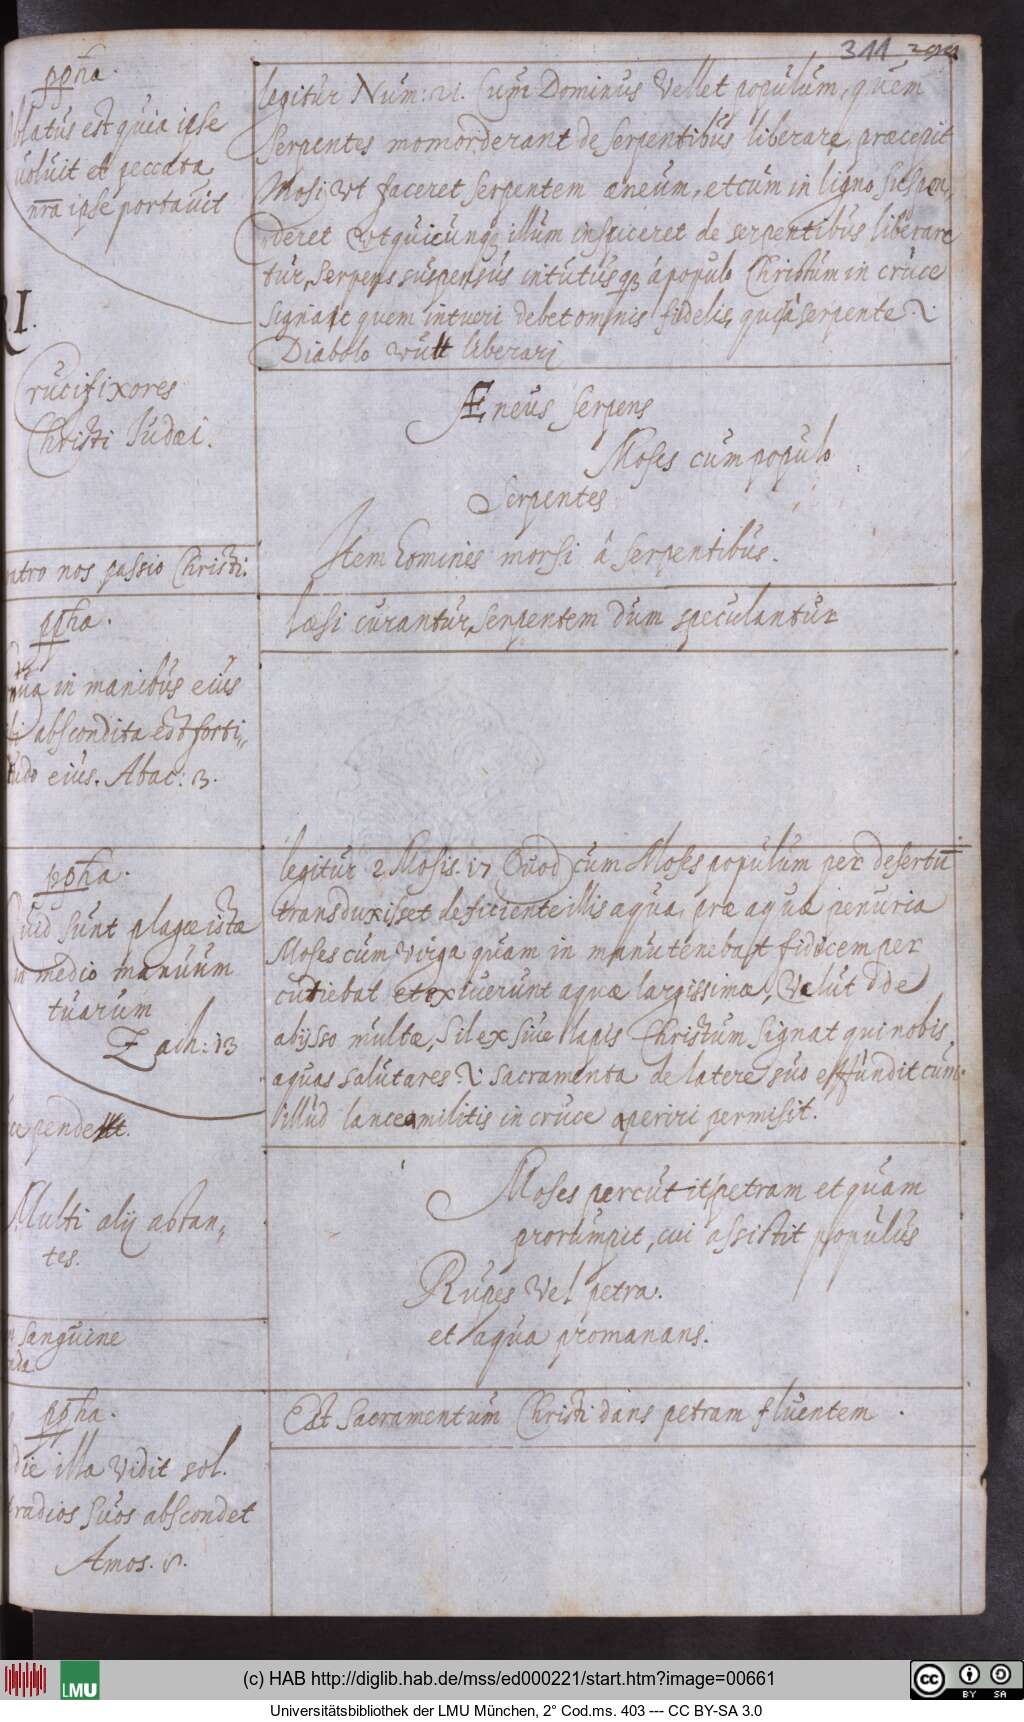 311 299
ppha.
blatus est quia ipse
voluit et peccata
nra ipse portavit
RI.
Crucifixores
Christi Judæi.
atro nos passio Christi.
ppha.
in manibus eius
abscondita est forti„
tudo eius. Abac: 3.
ppha.
Quid sunt plagæ istæ
in medio manuum
tuarum
Zach: 13
Multi alij astan„
tes.
sanguine
ppha.
die illa vidit sol.
radios suos abscondet
Amos.
legitur Num: 21. Cum Dominus vellet populum, quem
Serpentes momorderant de serpentibus liberare, præcepit
Mosi vt faceret serpentem æneum, et cum in ligno suspen„
deret vt quicunq illum inspiceret de serpentibus liberare
tur, Serpens suspensus intutusq à populo Christum in cruce
signat quem intueri debet omnis fidelis, qui à serpente .i.
Diabolo vult liberari
Æneus Serpens
Moses cum populo
Serpentes
Item homines morsi à serpentibus.
Læsi curantur, serpentem dum speculantur
legitur 2 Mosis. 17 Quod cum Moses populum per desertū
transduxisset deficiente illis aqua, præ aquæ penuria
Moses cum virga quam in manu tenebat silicem per
cutiebat et exiuerunt aquæ largissimæ, Velut de
abijsso multæ, Silex siue lapis Christum signat qui nobis
aquas salutares .i. sacramenta de latere suo effundit cum
illud lancea militis in cruce aperiri permisit.
Moses percutit petram et quam
prorumpit, cui assistit populus
Rupes vel petra.
et aqua promanans.
Est Sacramentum Christi dans petram fluentem .
(c) HAB http://diglib.hab.de/mss/ed000221/start.htm?image=00661
LMU
cc BY SA
Universitätsbibliothek der LMU München, 2° Cod.ms. 403 --- CC BY-SA 3.0